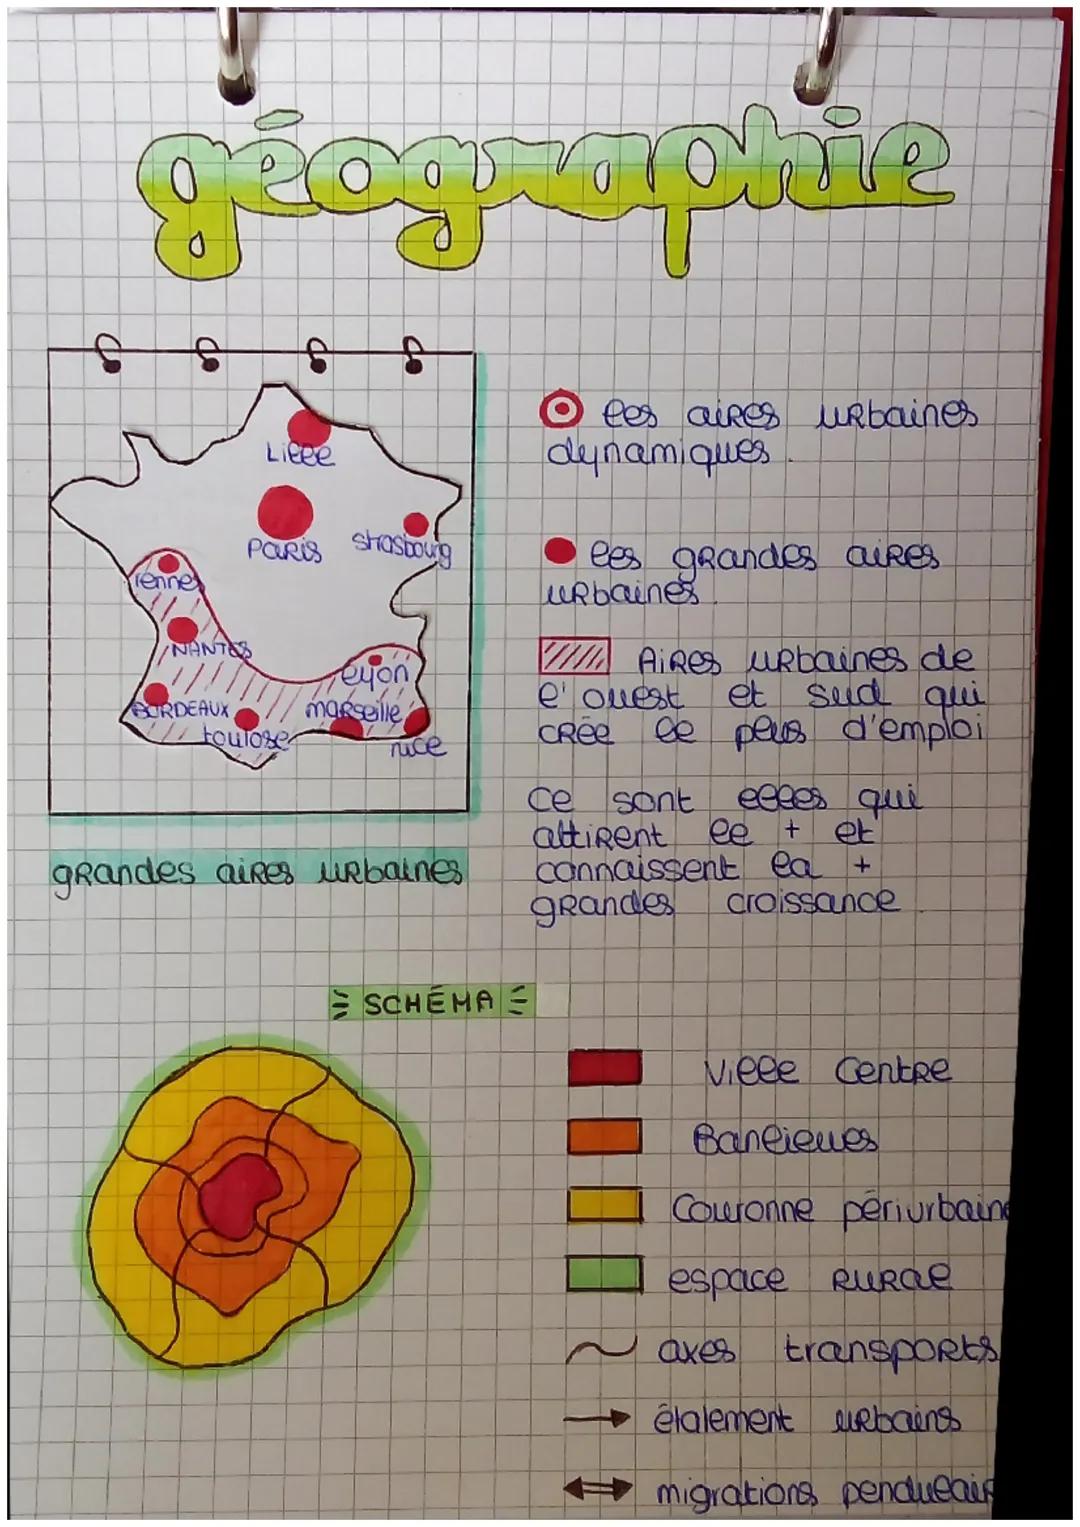 géographie
Lille
Paris
strasbourg
rennes
NANTES
lyon
BORDEAUX
marseille
toulose
nice
grandes aires urbaines
les aires urbaines
dynamiques.
les grandes aires
urbaines.
Aires urbaines de
l'ouest et sud qui
crée le plus d'emploi
ce sont elles qui
attirent le + et
connaissent la +
grandes croissance.
SCHÉMA
Ville Centre
Banlieues
Couronne périurbaine
espace rural
axes transports
étalement urbains
migrations pendulair